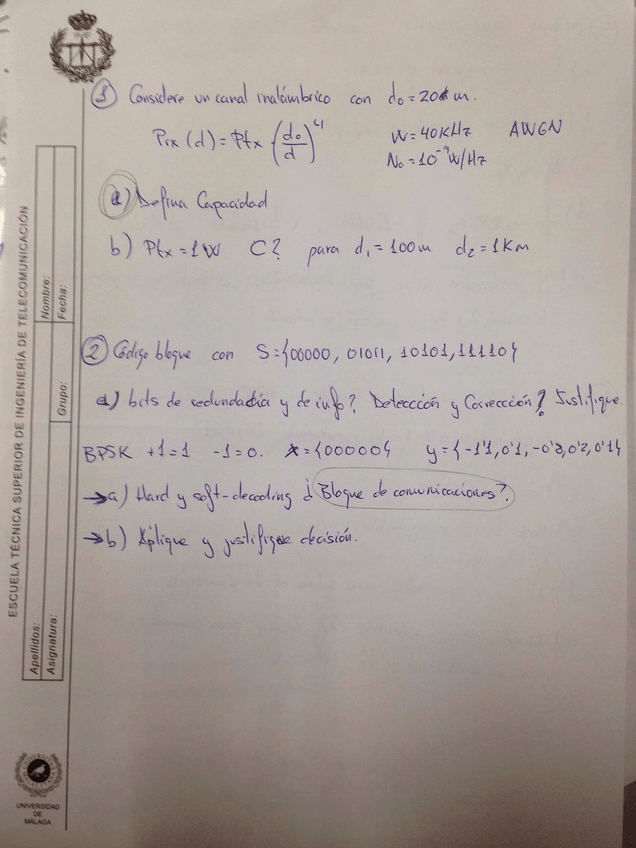 ESCUELA TÉCNICA SUPERIOR DE INGENIERÍA DE TELECOMUNICACIÓN
Apellidos:
Nombre:
Asignatura:
Grupo:
Fecha:
UNIVERSIDAD
DE
MÁLAGA
Considere un canal inalámbrico con d₀ = 20 m.
Prx (d) = Ptx (d₀/d)⁴ W = 40 KHz AWGN
N₀ = 10⁻⁹ W/Hz
a) Defina Capacidad
b) Ptx = 1 W C? para d₁ = 100 m d₂ = 1 Km
2 Código bloque con S = {00000, 01011, 10101, 11110}
a) bits de redundadcia y de info? Detección y Corrección? Justifique.
BPSK +1=1 -1=0. x={00000} y={-1'1, 0'1, -0'8, 0'2, 0'1}
→a) Hard y soft-decoding ¿Bloque de comunicaciones?
→b) Aplique y justifique decisión.